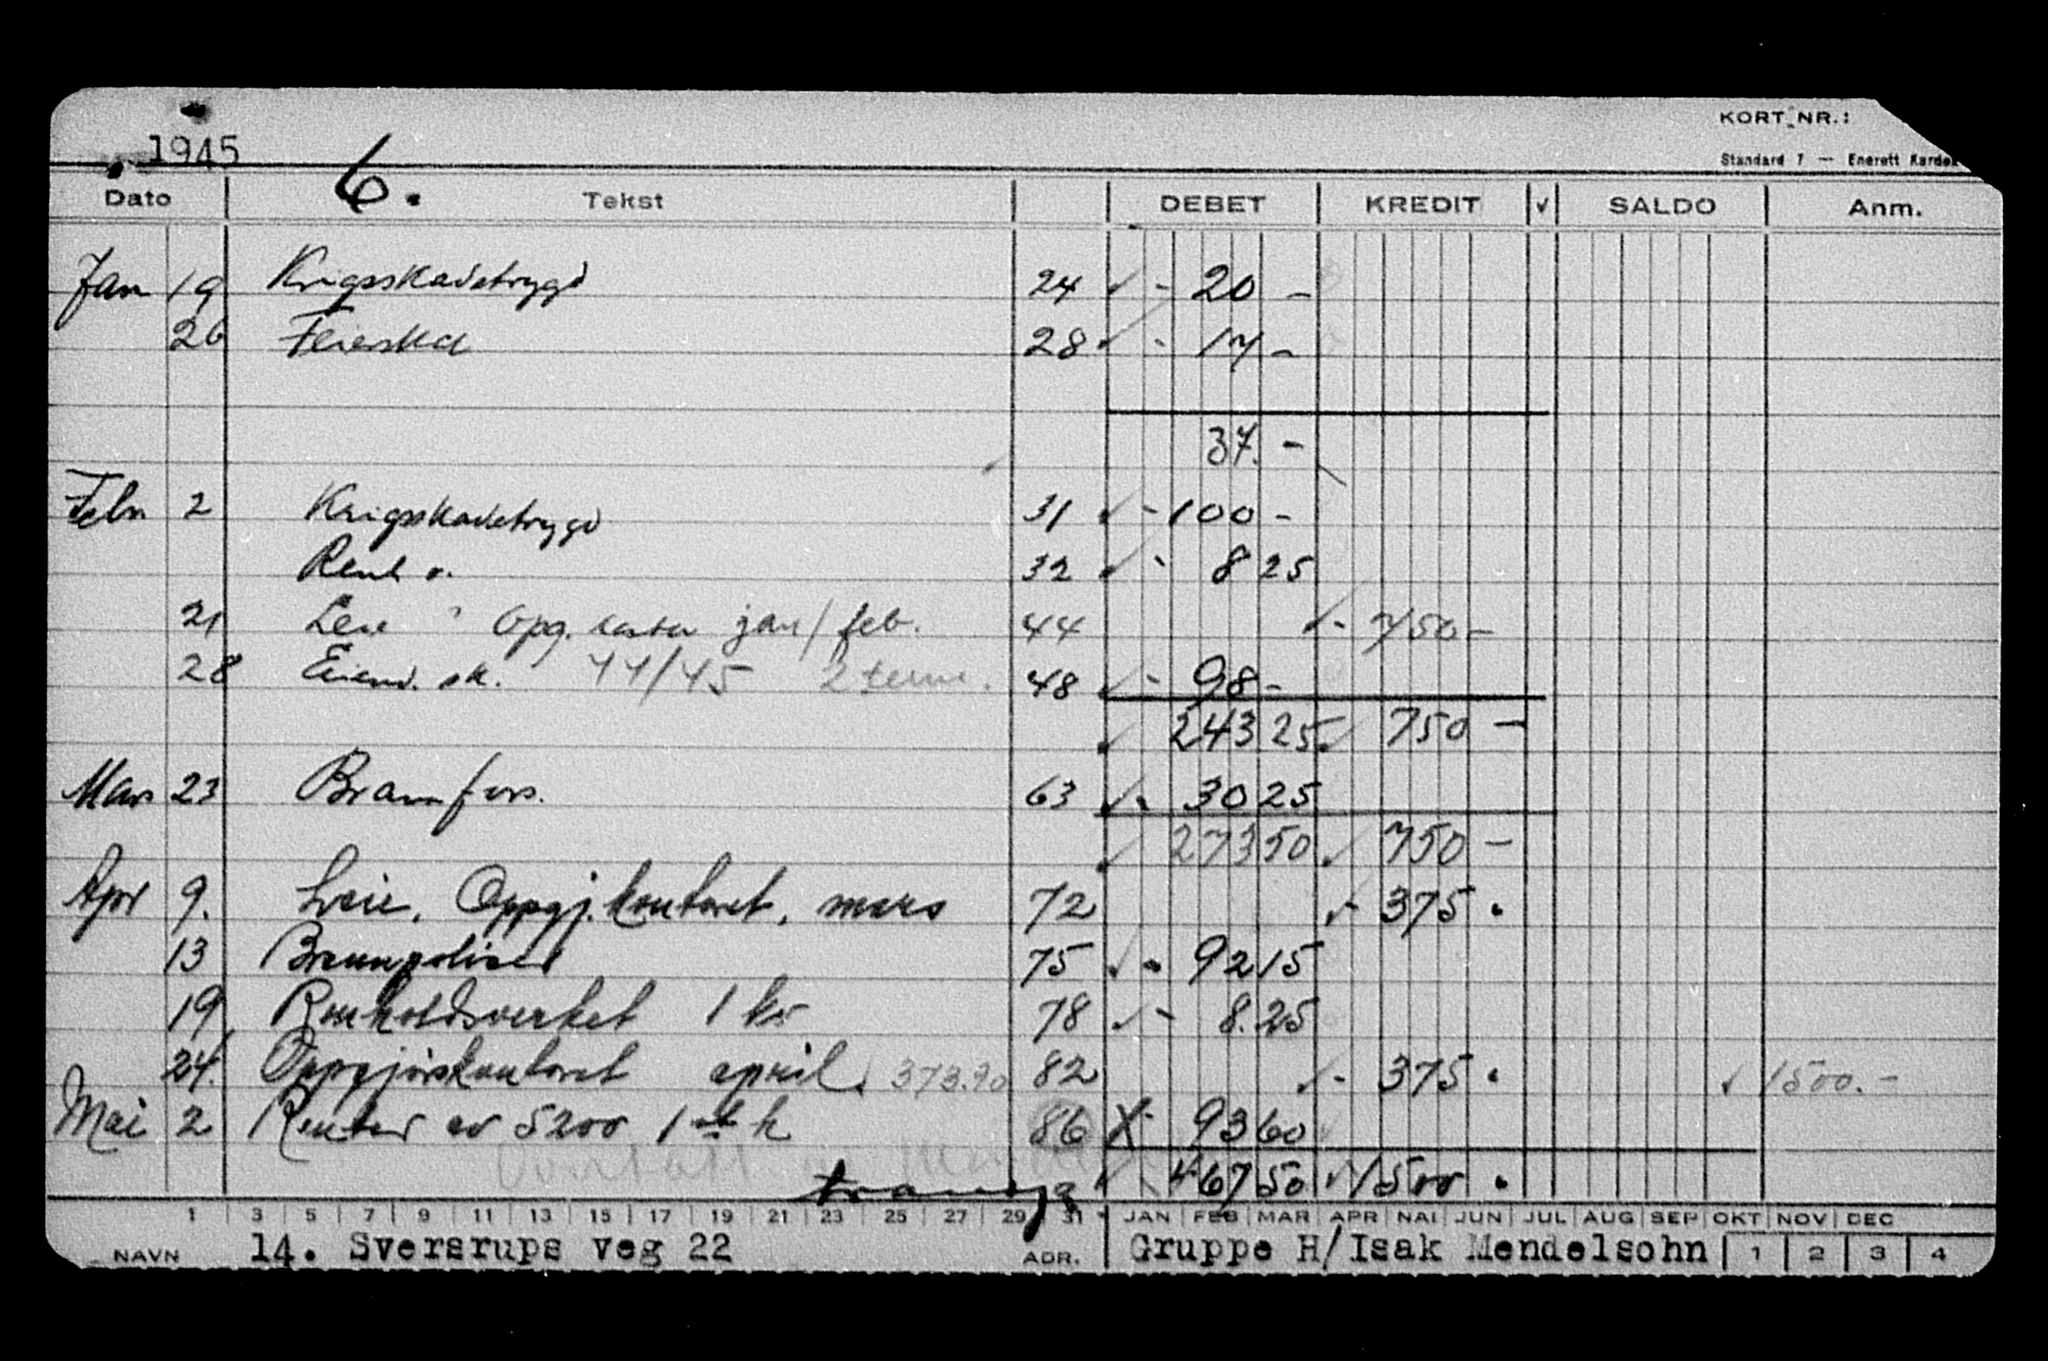 KORT NR.:
1945 6. Standard 7 — Enerett Kardex
Dato Tekst DEBET KREDIT √ SALDO Anm.
Jan 19 Krigsskadetrygd 24 √ - 20 -
26 Feierskat 28 √ - 17 -
37. -
Febr 2 Krigsskadetrygd 31 √ - 100 -
Renh.v. 32 √ - 8 25
21 Leie Opg. kontor jan/feb. 44 √ - 750 -
28 Eiend. sk. 44/45 2 termin. 48 √ - 98 -
√ 243 25 √ 750 -
Mars 23 Brannfors. 63 √ - 30 25
√ 273 50 √ 750 -
Apr 9. Leie, Oppgj.kontoret, mars 72 √ - 375 .
13 Brannpoliser 75 √ - 92 15
19 Renholdsverket 1 kv 78 √ - 8.25
24. Oppgjørskontoret april. 373.90 82 √ - 375 . √ 1500.-
Mai 2 Renter av 5200 1ste h 86 X - 93 60
transp √ 467 50 √ 1500 .
1 3 5 7 9 11 13 15 17 19 21 23 25 27 29 31 JAN FEB MAR APR MAI JUN JUL AUG SEP OKT NOV DEC
NAVN 14. Sversrups veg 22 ADR. Gruppe H/Isak Mendelsohn 1 2 3 4